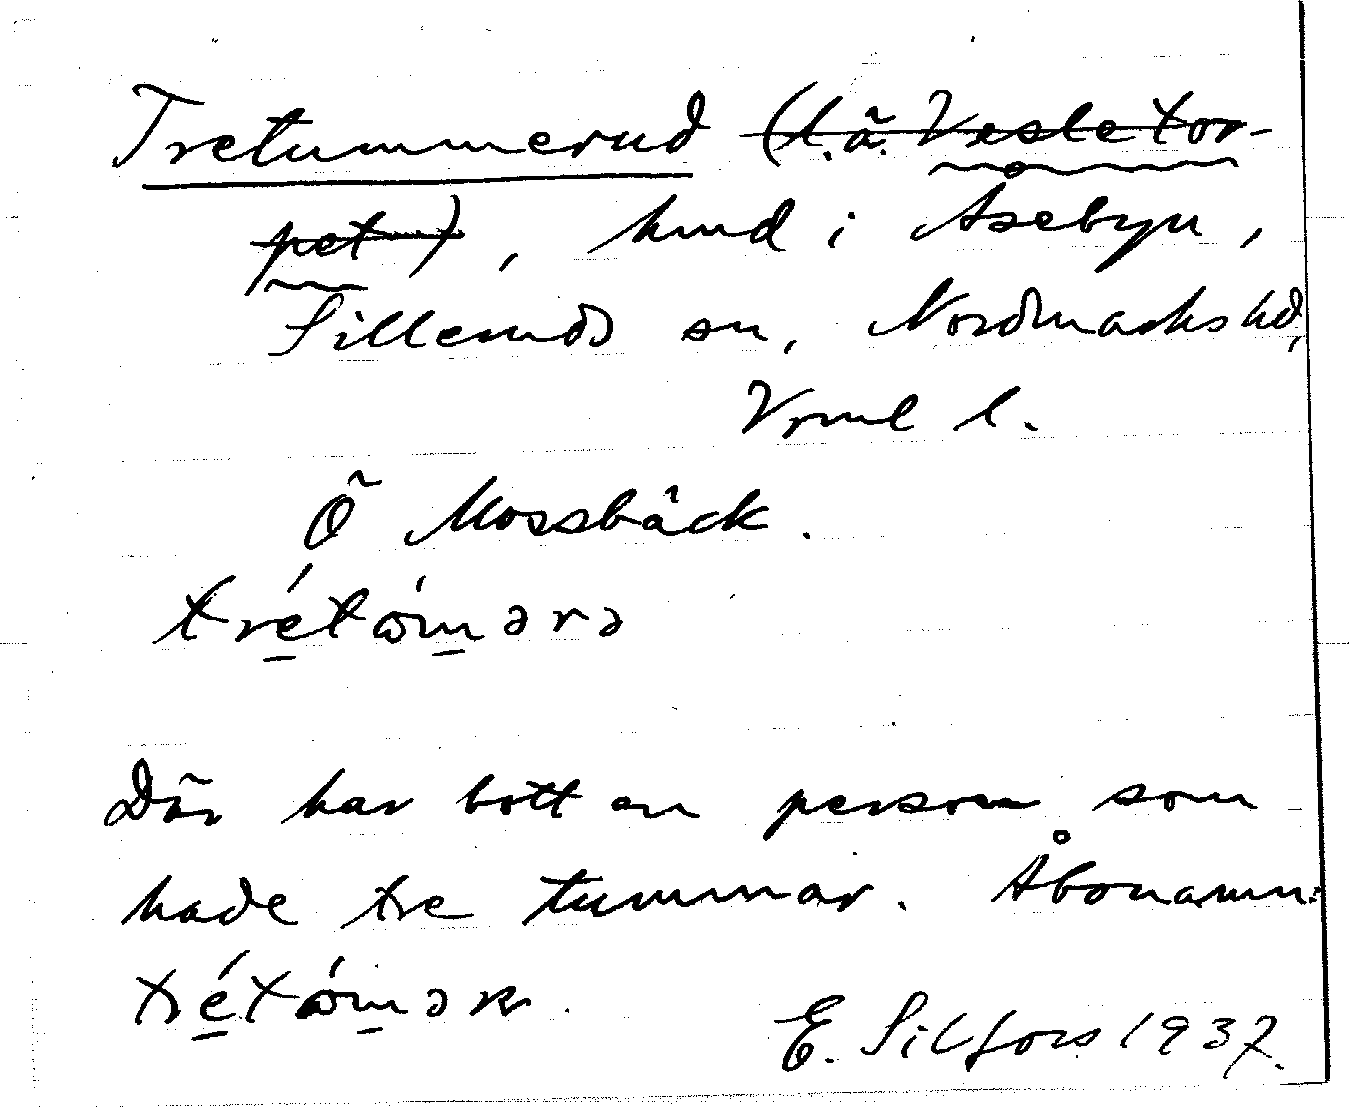 Tretummerud (l. ä. Vesle tor-
pet), hmd i Åsebyn,
Silleruds sn, Nordmarks hd,
Vrml l.
Ö Mossbäck.
trétòmərə
Där har bott en person som
hade tre tummar. Åbonamn:
trétòmər.
E. Silfors 1937.